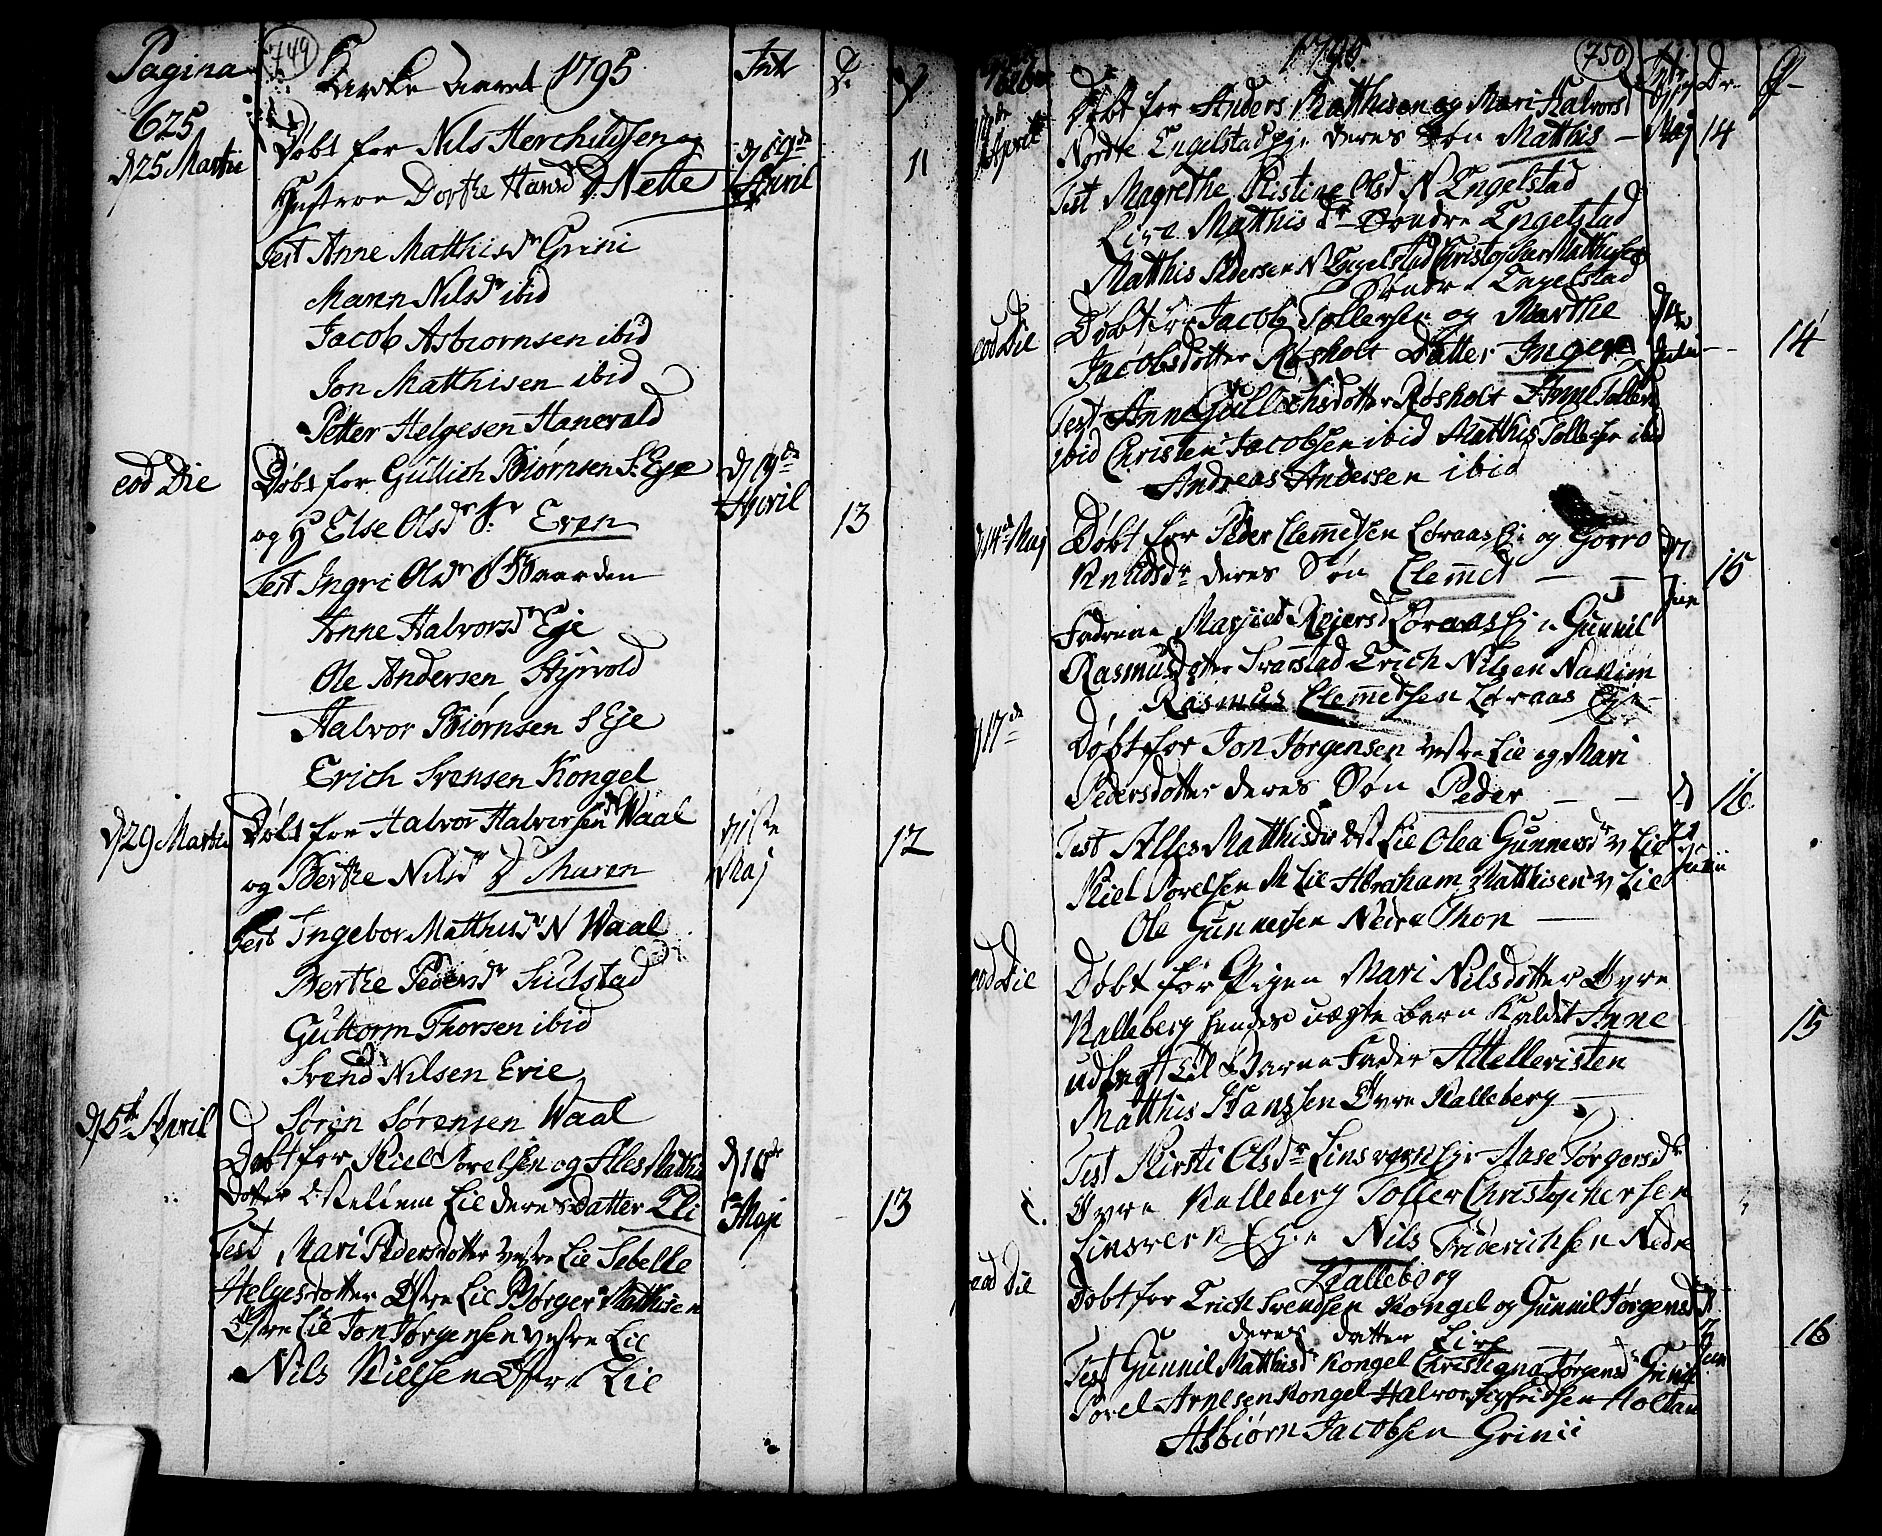 Pagina 749 Kirke Aaret 1795 Int D. P
625
d 25 Martii Døbt for Nils Herchildsen og d 19de April 11
Hustroe Dorthe Hansd D. Nette
Test Anne Matthisdr Grini
Maren Nilsdr ibid
Jacob Asbiornsen ibid
Jon Matthisen ibid
Petter Helgesen Hanevald
eod Die Døbt for Gullich Biørnsen S. Eje d 19de April 13
og H Else Olsdr S. Even
Test Ingri Olsdr Gaarden
Anne Halvorsdr Eje
Ole Andersen Styrvold
Halvor Biørnsen S Eje
Erich Svensen Kongel
d 29 Martii Døbt for Halvor Halvorsen Waal d 1ste Maj 12
og Berthe Nilsdr D Maren
Test Ingebor Matthisdr N Waal
Berthe Pedersdr Sulstad
Guttorm Thorsen ibid
Svend Nilsen Evie
Søren Sørensen Waal
d 5te April Døbt for Kiel Torelsen og Alles Matthis d 10de Maji 13
Dotter Mellem Lie deres Datter Eli
Test Mari Pedersdotter Vestre Lie Sebelle
Helgesdotter Østre Lie Børger Matthisen
Østre Lie Jon Jørgensen Vestre Lie
Nils Nielsen Østre Lie
626 1795 750 Dr. P
April Døbt for Anders Matthisen og Mari Halvorsd
Nordre Engelstad Eje deres Søn Matthis — Maj 14
Test Magrethe Kistine Olsd N Engelstad
Live Matthisdr Søndre Engelstad
Matthis Pedersen N Engelstad Christopher Matthisen
Søndre Engelstad
eod Die Døbt for Jacob Tollefsen og Marthe
Jacobsdotter Røsholt Datter Inger — 14
Test Anne Gullichsdotter Røsholt Anne Tollefs
ibid Christen Jacobsen ibid Matthis Tollefsen ibid
Andreas Andersen ibid
d 14de Maj Døbt for Peder Clemmetsen Løraas Eje og Gorro Jun 15
Knudsdr deres Søn Clemmet —
Fadrene Marjied Rejersd Løraas Eje Gunnil
Rasmusdotter Svarstad Erich Nilsen Nakim
Rasmus Clemmetsen Løraas Eje
d 17de Døbt for Jon Jørgensen Vestre Lie og Mari
Pedersdotter deres Søn Peder — — d 21 Junii 16
Test Alles Matthisdr Øst Lie Olea Gunnersdr V Lie
Kiel Torelsen M Lie Abraham Matthisen V Lie
Ole Gunnesen Nedre Thon —
eod Die Døbt for Pigen Mari Nilsdotter Øvre
Kalleberg hendes uægte Barn Kaldet Anne 15
udlagt til Barne Fader Attelleristen
Matthis Hanssen Øvre Kalleberg —
Test Kirsti Olsdr Linsverk Eje Aase Torgersdr
Øvre Kalleberg Tollef Christophersen
Linsverk Eje Nils Friderichsen Nedre
Kalleberg
eod Die Døbt for Erich Svendsen Kongel og Gunnil Jørgensd Jun 16
deres datter Live
Test Gunnil Matthisd Kongel Christiana Jørgensd Grinii
Torel Arnesen Kongel Halvor Sigfridsen Holtan
Asbiørn Jacobsen Grinii